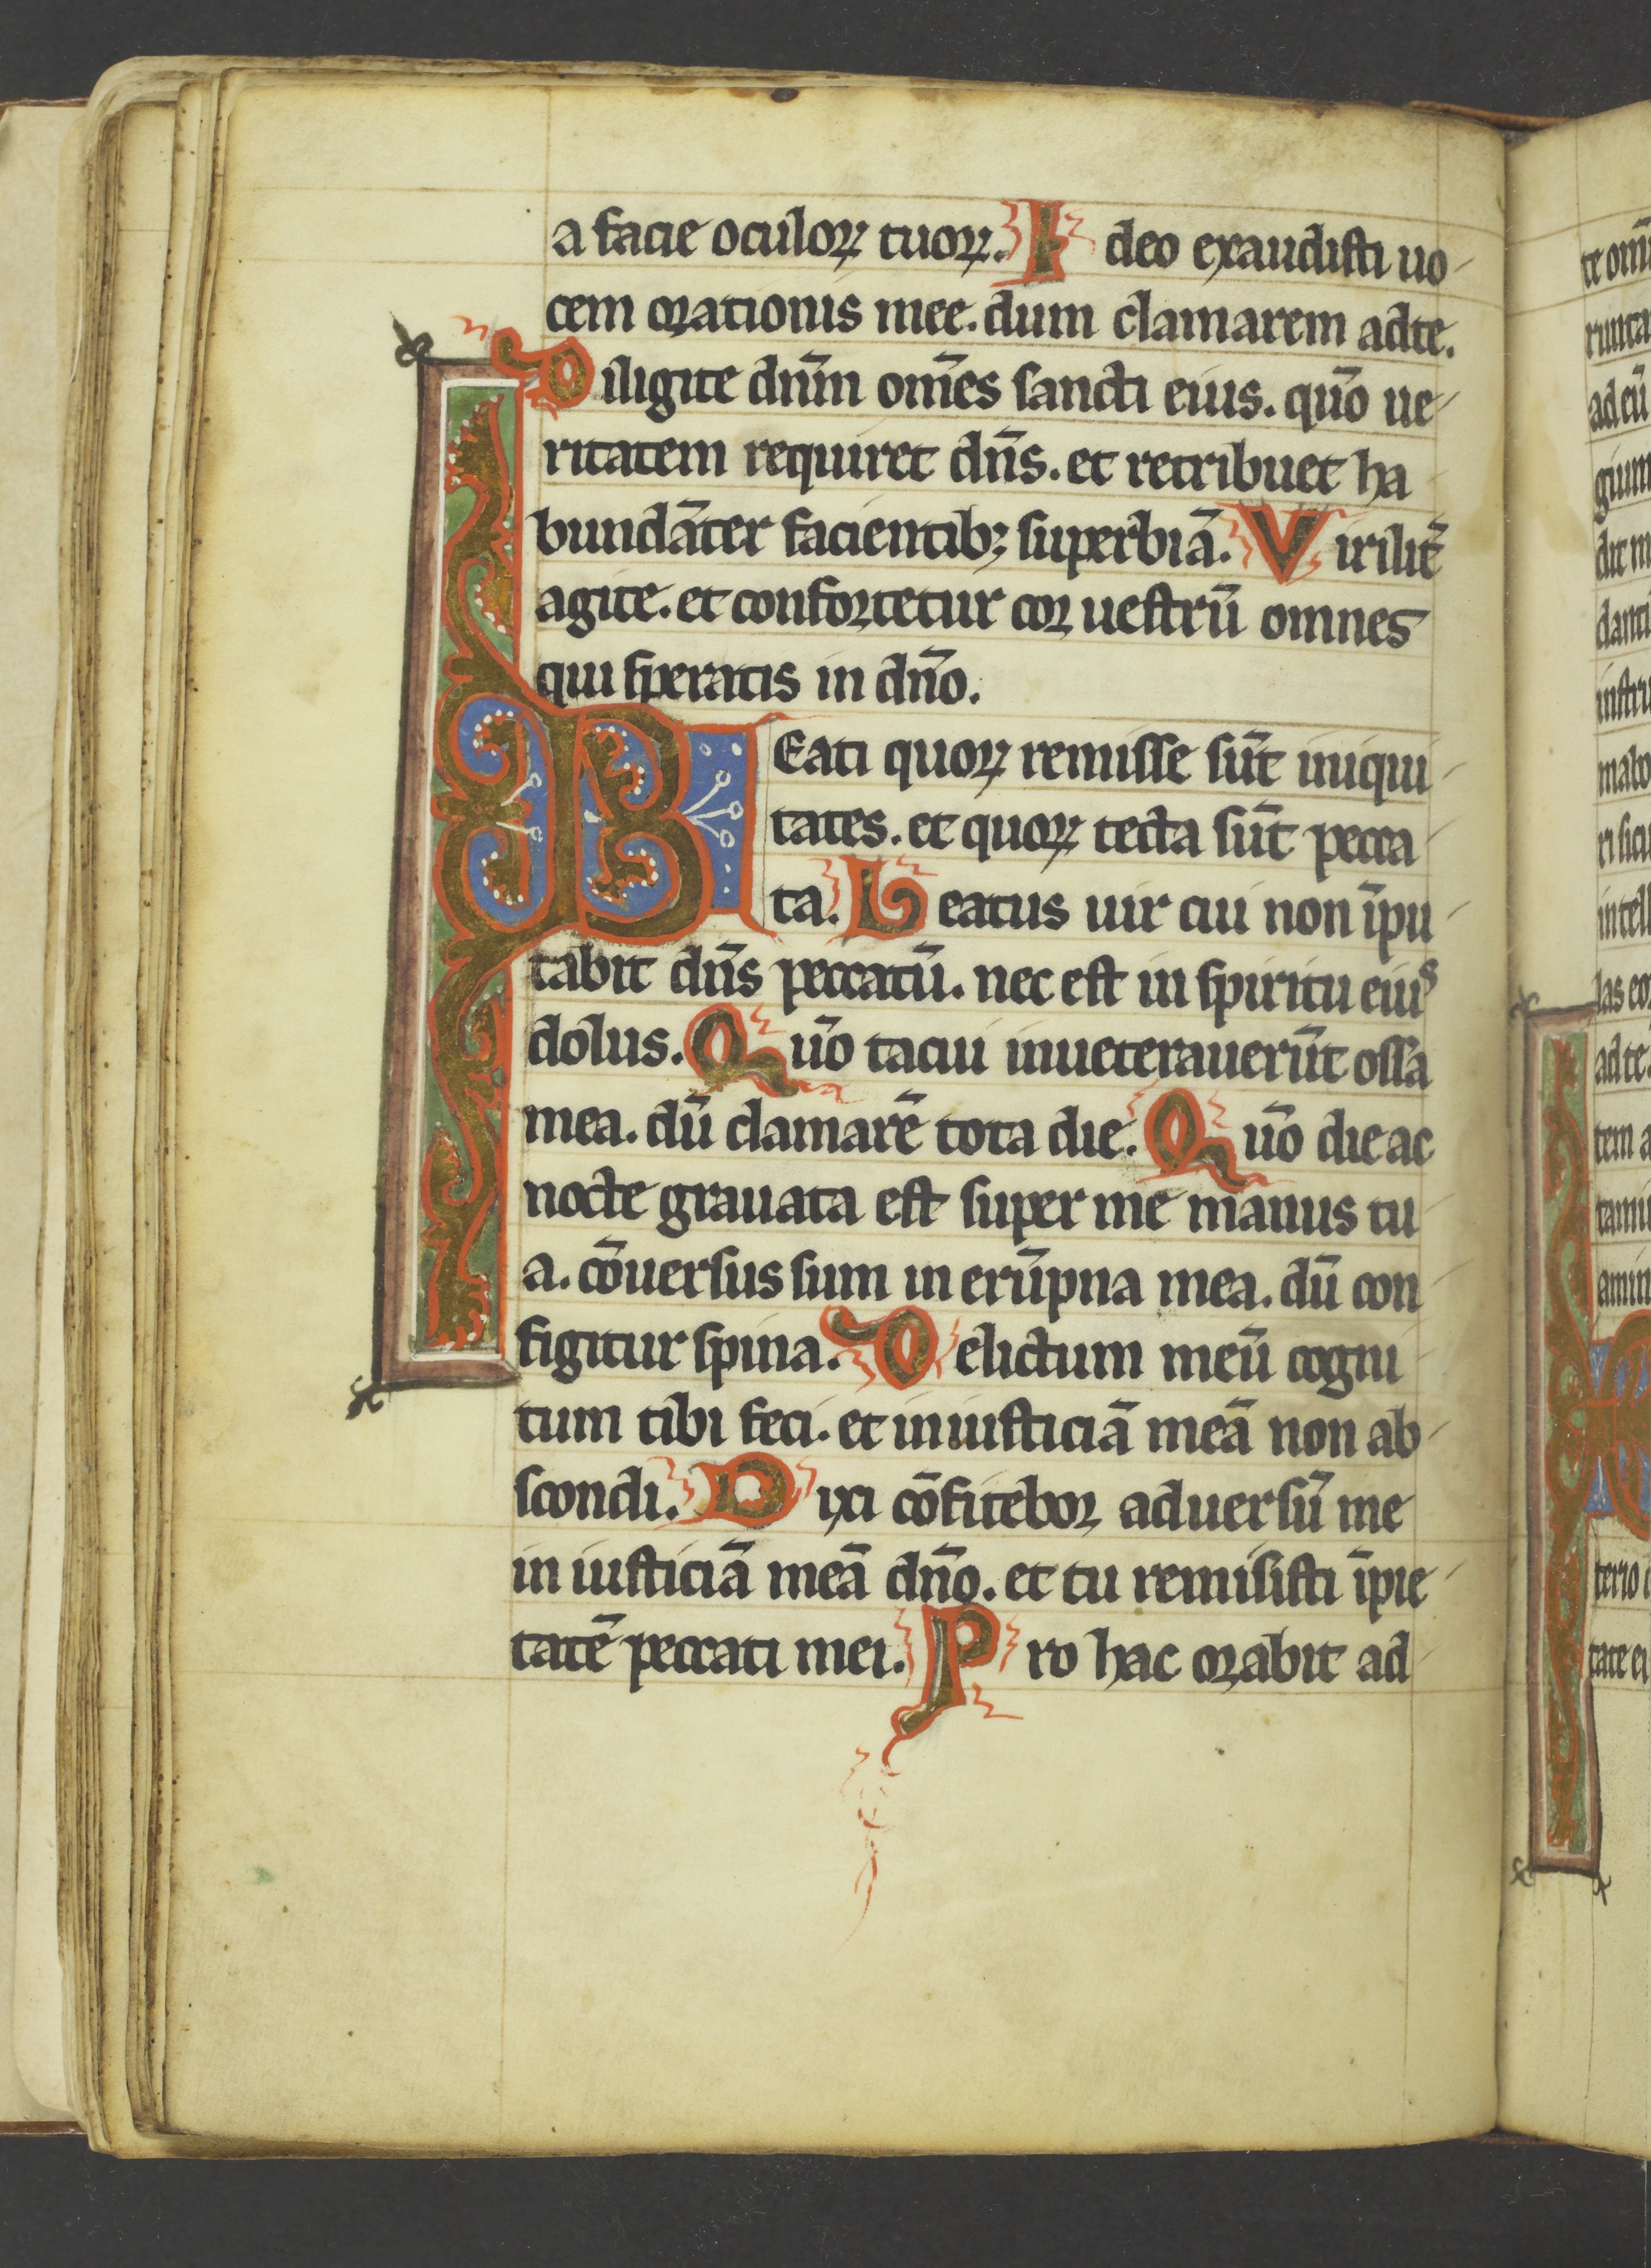 a facie oculoꝝ tuoꝝ. I deo exaudisti uo
cem orationis mee. dum clamarem adte.
Diligite dn̄m om̄es sancti eius. qūo ue
ritatem requiret dn̄s. et retribuet ha
bundāter facientibꝫ superbiā. Virilit̄
agite. et confortetur cor uestrū omnes
qui speratis in dn̄o.
BEati quoꝝ remisse sūt iniqui
tates. et quoꝝ tecta sūt pecca
ta. Leatus uir cui non īpu
tabit dn̄s peccatū. nec est in spiritu eius
dolus. Qūo tacui inueterauerūt ossa
mea. dū clamarē tota die. Qūo die ac
nocte grauata est super me manus tu
a. cōuersus sum in erūpna mea. dū con
figitur spina. Delictum meū cogni
tum tibi feci. et iniusticiā meā non ab
scondi. Dixi cōfitebor aduersū me
in iusticiā meā dn̄o. et tu remisisti īpie
tatē peccati mei. Pro hac orabit ad